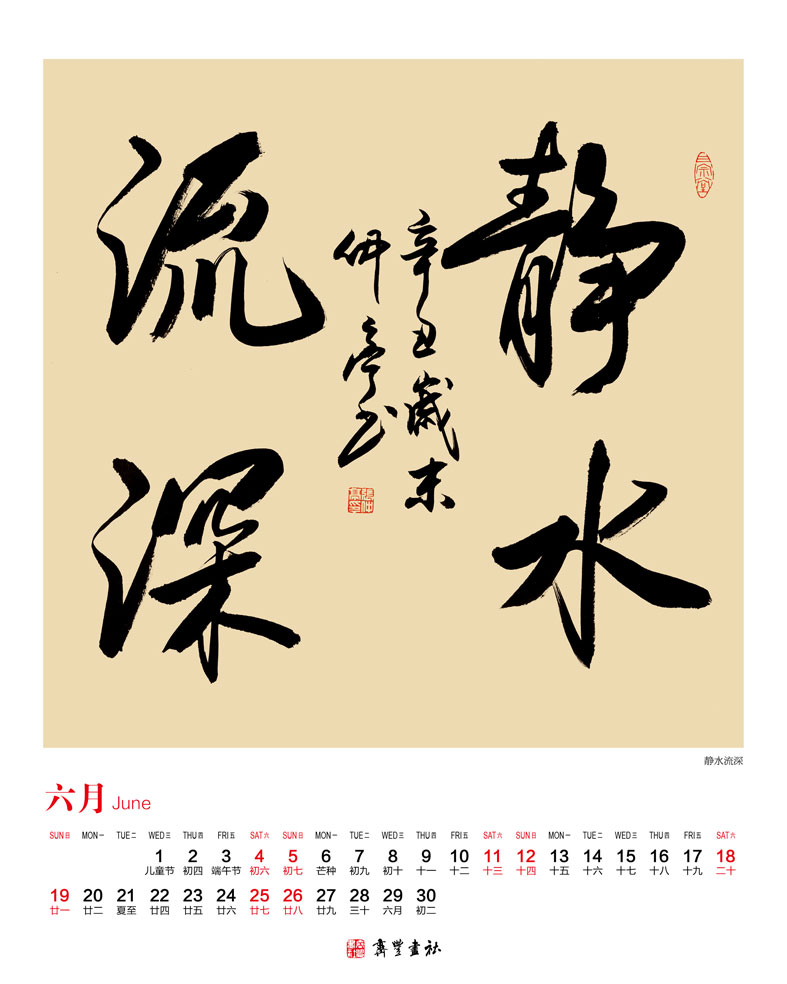 静水
流深
辛丑歲末
仲亭书
静水流深
六月 June
SUN日 MON一 TUE二 WED三 THU四 FRI五 SAT六 SUN日 MON一 TUE二 WED三 THU四 FRI五 SAT六 SUN日 MON一 TUE二 WED三 THU四 FRI五 SAT六
1 2 3 4 5 6 7 8 9 10 11 12 13 14 15 16 17 18
儿童节 初四 端午节 初六 初七 芒种 初九 初十 十一 十二 十三 十四 十五 十六 十七 十八 十九 二十
19 20 21 22 23 24 25 26 27 28 29 30
廿一 廿二 夏至 廿四 廿五 廿六 廿七 廿八 廿九 三十 六月 初二